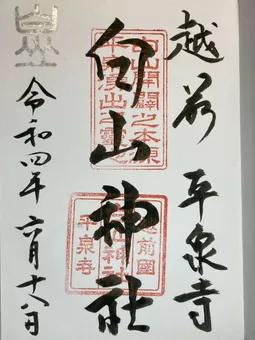 越前
平泉寺
白山神社
令和四年六月十八日
白山開闢之本源
平泉湧出之靈地
越前國
白山神社
平泉寺